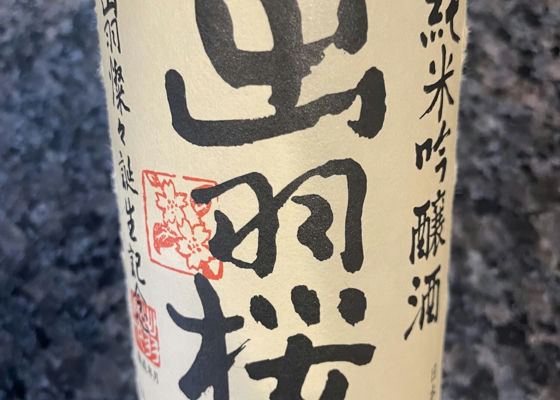 純米吟醸酒
出羽桜
出羽燦々誕生記念